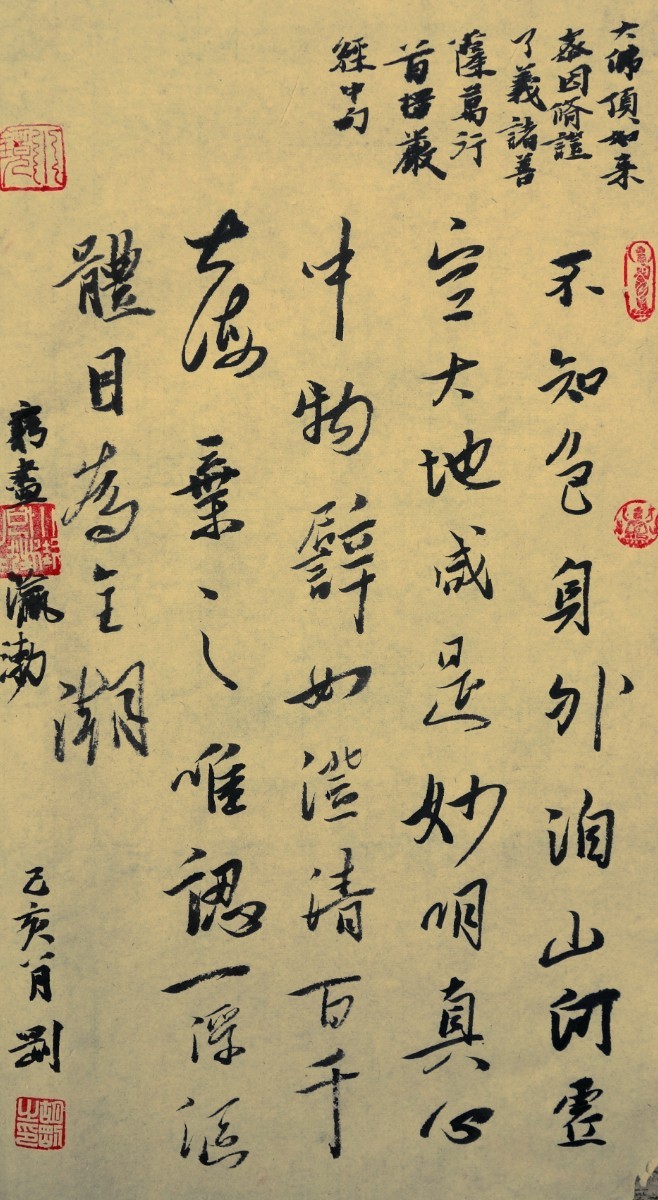 大佛頂如来
密因脩證
了義諸善
薩萬行
首楞嚴
經中句
不知色身外洎山河虛
空大地咸是妙明真心
中物譬如澄清百千
大海棄之唯認一浮漚
體目為全潮
窮盡瀛渤
己亥八月